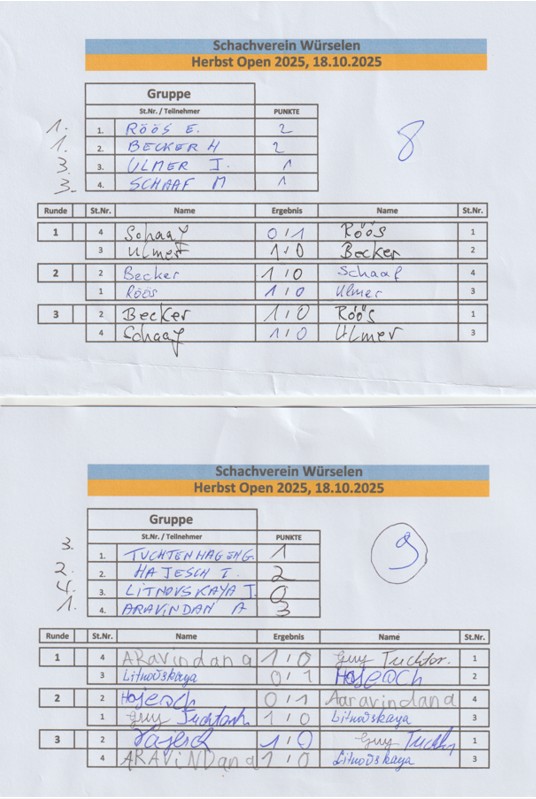 Schachverein Würselen
Herbst Open 2025, 18.10.2025
Gruppe
St.Nr. / Teilnehmer PUNKTE
1. 1. RÖÖS E. 2
1. 2. BECKER H 2
3. 3. ULMER J. 1
3. 4. SCHAAF M 1
8
Runde St.Nr. Name Ergebnis Name St.Nr.
1 4 Schaaf 0:1 Röös 1
3 Ulmer 1:0 Becker 2
2 2 Becker 1:0 Schaaf 4
1 Röös 1:0 Ulmer 3
3 2 Becker 1:0 Röös 1
4 Schaaf 1:0 Ulmer 3
Schachverein Würselen
Herbst Open 2025, 18.10.2025
Gruppe
St.Nr. / Teilnehmer PUNKTE
3. 1. TUCHTENHAGEN G. 1
2. 2. HAJESCH T. 2
4. 3. LITNOVSKAYA J. 0
1. 4. ARAVINDAN A 3
9
Runde St.Nr. Name Ergebnis Name St.Nr.
1 4 ARavindana 1:0 Guy 1
3 Litnovskaya 0:1 Hajesch 2
2 2 Hajesch 0:1 Aaravindana 4
1 Guy 1:0 Litnovskaya 3
3 2 Hajesch 1:0 Guy 1
4 ARAViNDana 1:0 Litnovskaya 3